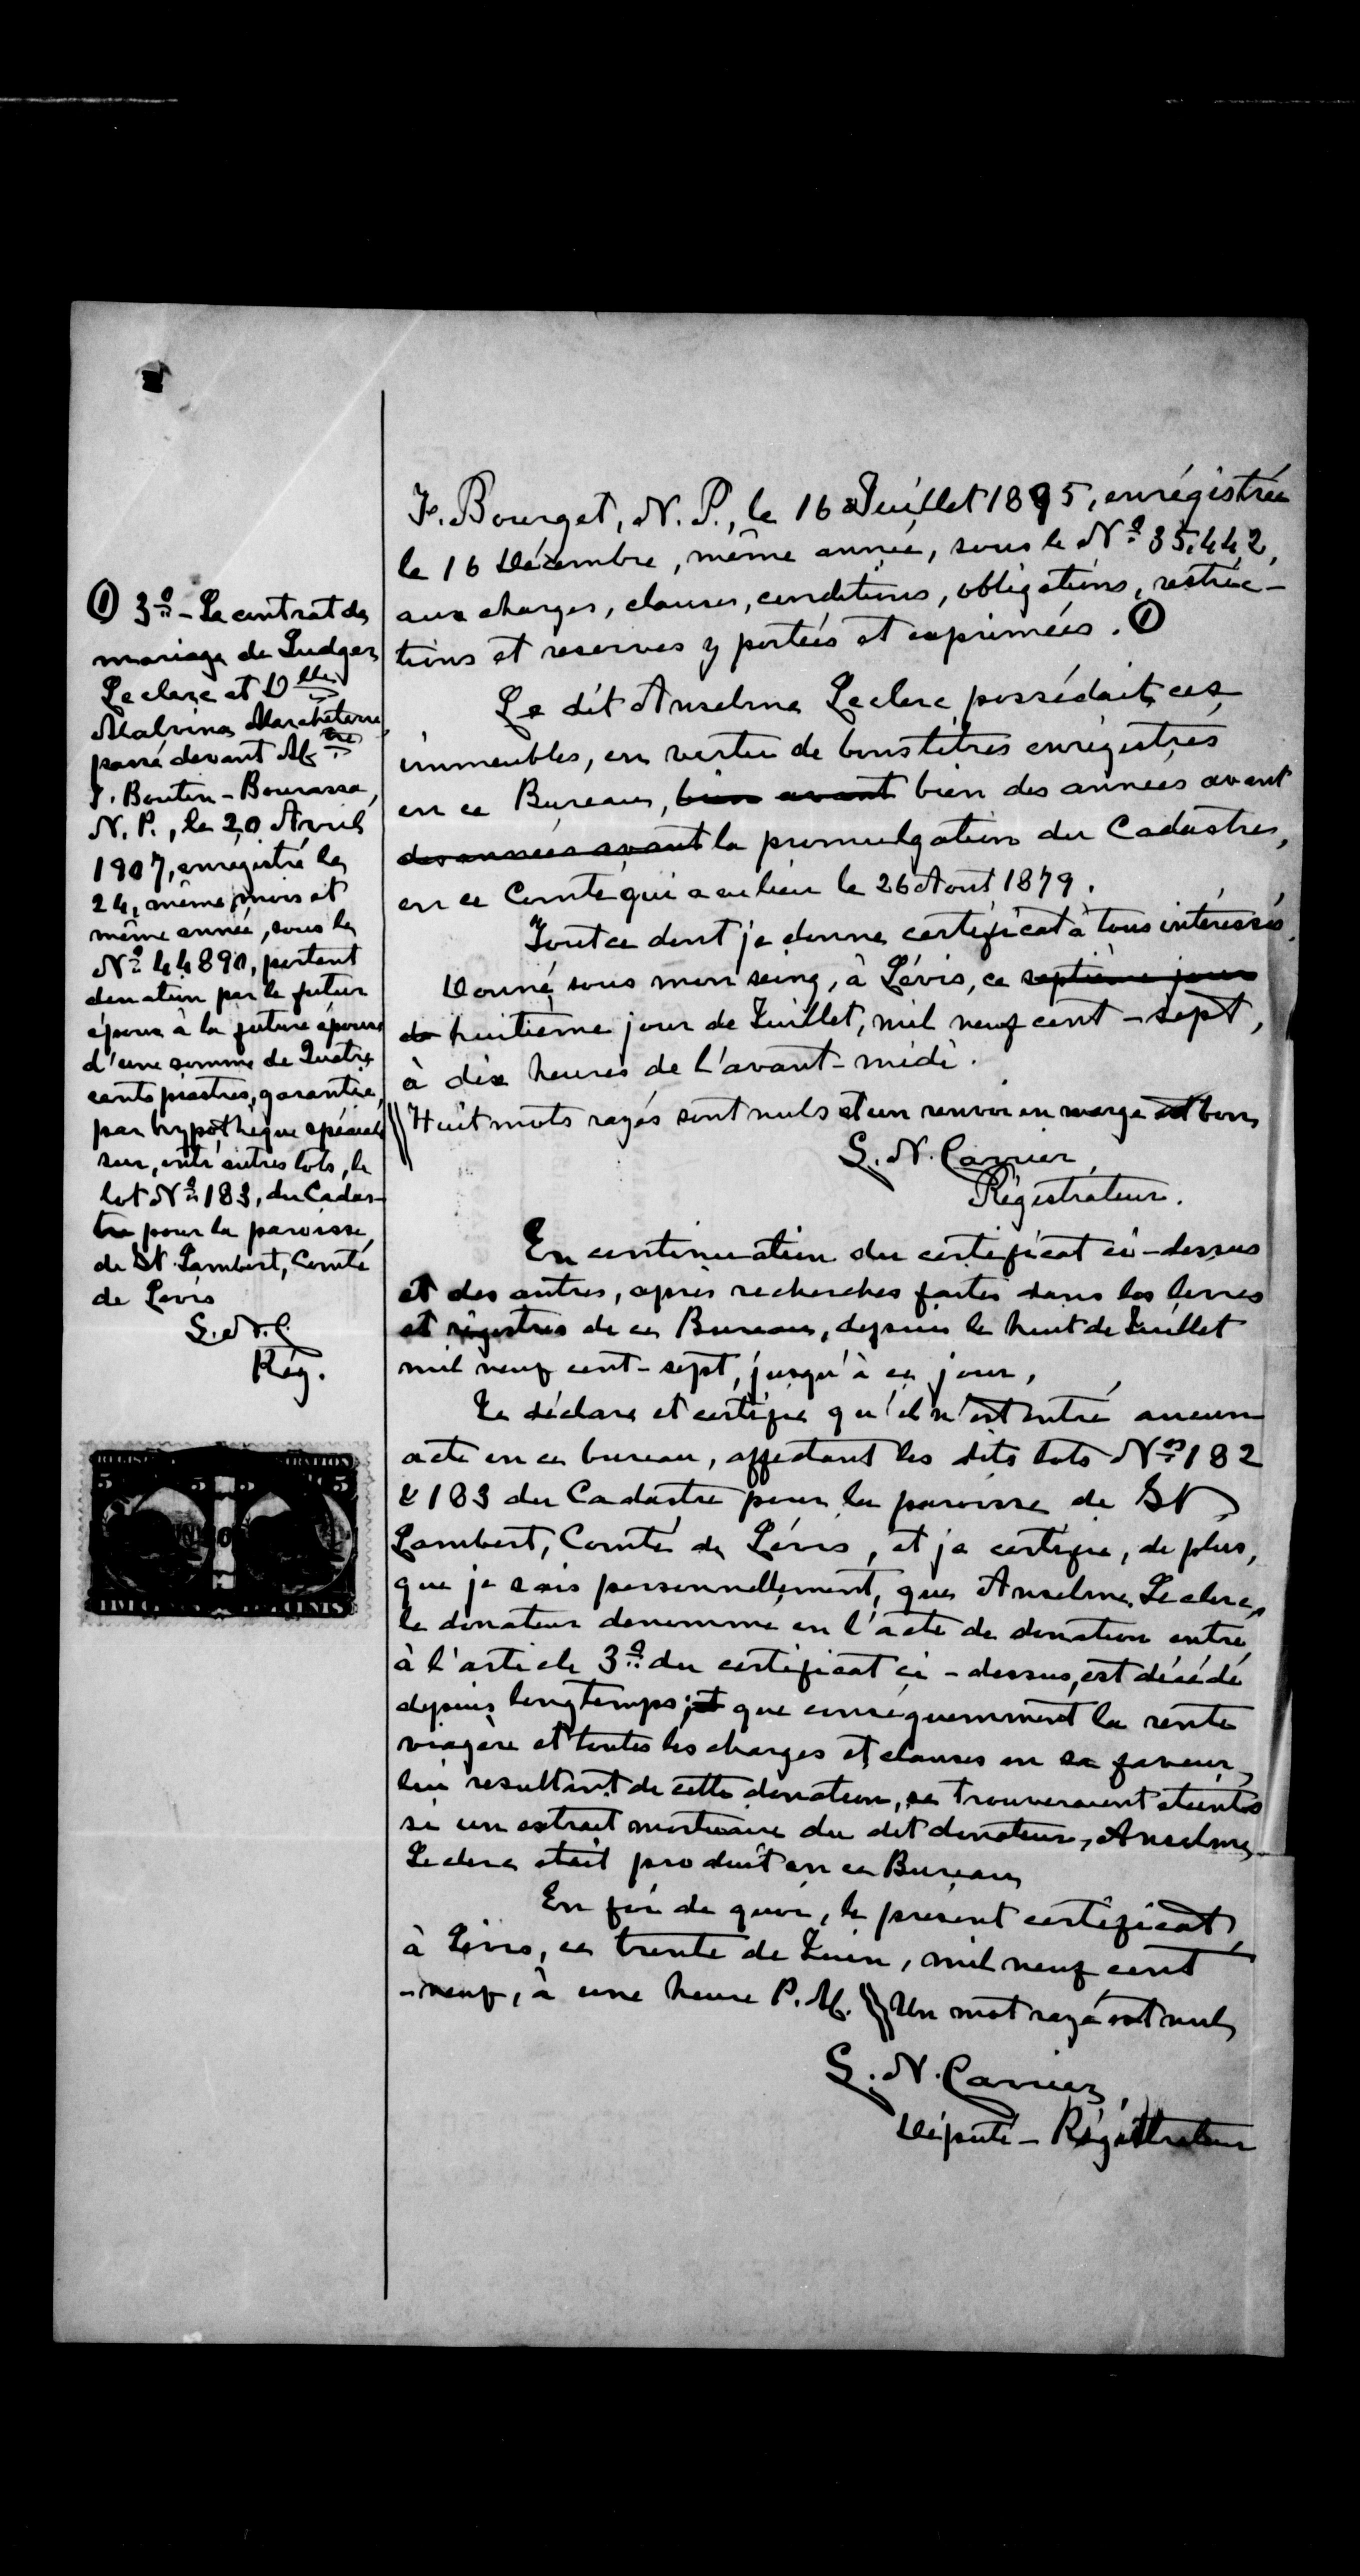 F. Bourget, N. P., le 16 Juillet 1895, enrégistrée
le 16 Décembre, même année, sous le Nº 35,442,
aux charges, clauses, conditions, obligations, restric-
tions et reserves y portées et exprimées. ①
Le dit Anselme Leclerc possédait ces
immeubles, en vertu de bons titres enrégistrés
en ce Bureau, bien avant bien des années avant
des années avant la promulgation du Cadastre,
en ce Comté qui a eu lieu le 26 Aout 1879.
Tout ce dont je donne certificat à tous intéressés.
Donné sous mon seing, à Lévis, ce septième jour
de huitième jour de Juillet, mil neuf cent-sept,
à dix heures de l'avant-midi.
Huit mots rayés sont nuls et un renvoi en marge est bon
L. N. Carrier,
Régistrateur.
En continuation du certificat ci-dessus
et des autres, après recherches faites dans les livres
et régistres de ce Bureau, depuis le huit de Juillet
mil neuf cent-sept, jusqu'à ce jour,
Je déclare et certifie qu'il n'est entré aucun
acte en ce bureau, affectant les dits lots Nos 182
& 183 du Cadastre pour la paroisse de St
Lambert, Comté de Lévis, et je certifie, de plus,
que je sais personnellement, que Anselme Leclerc,
le donateur denommé en l'acte de donation entré
à l'article 3º du certificat ci-dessus, est décédé
depuis longtemps; et que conséquemment la rente
viagère et toutes les charges et clauses en sa faveur,
lui resultant de cette donation, se trouveraient eteintes
si un extrait mortuaire du dit donateur, Anselme
Leclerc était produit en ce Bureau
En foi de quoi, le présent certificat,
à Lévis, ce trente de Juin, mil neuf cent
-neuf, à une heure P. M. Un mot rayé est nul
L. N. Carrier,
Député-Régistrateur
① 3º - Le contrat de
mariage de Ludger
Leclerc et Dlle
Malvina Marcheterre
passé devant Mtre
J. Boutin-Bourassa,
N. P., le 20 Avril
1907, enregistré le
24, même mois et
même année, sous le
Nº 44890, portant
donation par le futur
époux à la future épouse
d'une somme de Quatre
cents piastres, garantie
par hypothèque spéciale
sur, entr'autres lots, le
lot Nº 183, du Cadas-
tre pour la paroisse
de St Lambert, Comté
de Lévis
L. N. C
Rég.
5 5 5
CENTS